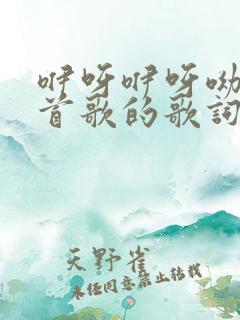 咿呀咿呀呦
首歌的歌词
天野雀
未经同意禁止转载